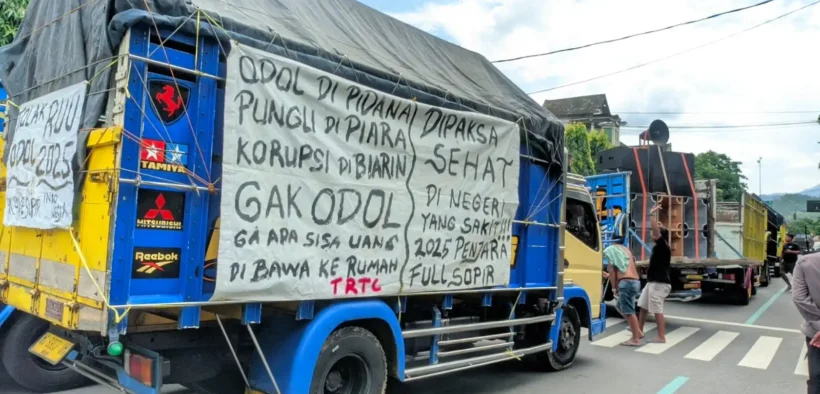 TOLAK RUU
ODOL 2025
TAMIYA
MITSUBISHI
Reebok
ODOL DI PIDANA
PUNGLI DI PIARA
KORUPSI DI BIARIN
GAK ODOL
GA APA SISA UANG
DI BAWA KE RUMAH
TRTC
DIPAKSA
SEHAT
DI NEGERI
YANG SAKIT !!!
2025 PENJARA
FULL SOPIR